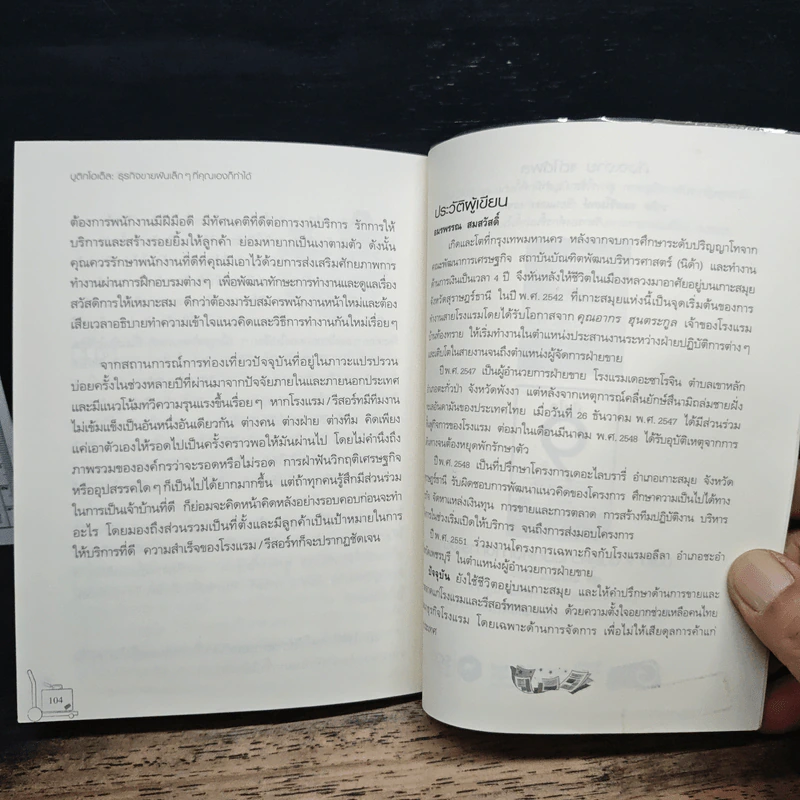 บูติกโฮเต็ล: ธุรกิจขายฝันเล็กๆ ที่คุณเองก็ทำได้
ต้องการพนักงานมีฝีมือดี มีทัศนคติที่ดีต่อการงานบริการ รักการให้
บริการและสร้างรอยยิ้มให้ลูกค้า ย่อมหายากเป็นเงาตามตัว ดังนั้น
คุณควรรักษาพนักงานที่ดีที่คุณมีเอาไว้ด้วยการส่งเสริมศักยภาพการ
ทำงานผ่านการฝึกอบรมต่างๆ เพื่อพัฒนาทักษะการทำงานและดูแลเรื่อง
สวัสดิการให้เหมาะสม ดีกว่าต้องมารับสมัครพนักงานหน้าใหม่และต้อง
เสียเวลาอธิบายทำความเข้าใจแนวคิดและวิธีการทำงานกันใหม่เรื่อยๆ
จากสถานการณ์การท่องเที่ยวปัจจุบันที่อยู่ในภาวะแปรปรวน
บ่อยครั้งในช่วงหลายปีที่ผ่านมาจากปัจจัยภายในและภายนอกประเทศ
และมีแนวโน้มทวีความรุนแรงขึ้นเรื่อยๆ หากโรงแรม/รีสอร์ทมีทีมงาน
ไม่เข้มแข็งเป็นอันหนึ่งอันเดียวกัน ต่างคน ต่างฝ่าย ต่างทีม คิดเพียง
แค่เอาตัวเองให้รอดไปเป็นครั้งคราวพอให้มันผ่านไป โดยไม่คำนึงถึง
ภาพรวมขององค์กรว่าจะรอดหรือไม่รอด การฝ่าฟันวิกฤติเศรษฐกิจ
หรืออุปสรรคใดๆ ก็เป็นไปได้ยากมากขึ้น แต่ถ้าทุกคนรู้สึกมีส่วนร่วม
ในการเป็นเจ้าบ้านที่ดี ก็ย่อมจะคิดหน้าคิดหลังอย่างรอบคอบก่อนจะทำ
อะไร โดยมองถึงส่วนรวมเป็นที่ตั้งและมีลูกค้าเป็นเป้าหมายในการ
ให้บริการที่ดี ความสำเร็จของโรงแรม/รีสอร์ทก็จะปรากฏชัดเจน
104
ประวัติผู้เขียน
สมสวัสดิ์
เกิดและโตที่กรุงเทพมหานคร หลังจากจบการศึกษาระดับปริญญาโทจาก
คณะพัฒนาการเศรษฐกิจ สถาบันบัณฑิตพัฒนบริหารศาสตร์ (นิด้า) และทำงาน
ด้านการเงินเป็นเวลา 4 ปี จึงหันหลังให้ชีวิตในเมืองหลวงมาอาศัยอยู่บนเกาะสมุย
จังหวัดสุราษฎร์ธานี ในปี พ.ศ. 2542 ที่เกาะสมุยแห่งนี้เป็นจุดเริ่มต้นของการ
ทำงานสายโรงแรมโดยได้รับโอกาสจาก คุณอากร ฮุนตระกูล เจ้าของโรงแรม
บ้านท้องทราย ให้เริ่มทำงานในตำแหน่งประสานงานระหว่างฝ่ายปฏิบัติการต่างๆ
และเติบโตในสายงานจนถึงตำแหน่งผู้จัดการฝ่ายขาย
ปี พ.ศ. 2547 เป็นผู้อำนวยการฝ่ายขาย โรงแรมเดอะซาโรจิน ตำบลเขาหลัก
อำเภอตะกั่วป่า จังหวัดพังงา แต่หลังจากเหตุการณ์คลื่นยักษ์สึนามิถล่มชายฝั่ง
ทะเลอันดามันของประเทศไทย เมื่อวันที่ 26 ธันวาคม พ.ศ. 2547 ได้มีส่วนร่วม
ฟื้นฟูกิจการของโรงแรม ต่อมาในเดือนมีนาคม พ.ศ. 2548 ได้รับอุบัติเหตุจากการ
เดินทางจนต้องหยุดพักรักษาตัว
ปี พ.ศ. 2548 เป็นที่ปรึกษาโครงการเดอะไลบรารี่ อำเภอเกาะสมุย จังหวัด
สุราษฎร์ธานี รับผิดชอบการพัฒนาแนวคิดของโครงการ ศึกษาความเป็นไปได้ทาง
จัดหาแหล่งเงินทุน การขายและการตลาด การสร้างทีมปฏิบัติงาน บริหาร
ในช่วงเริ่มเปิดให้บริการ จนถึงการส่งมอบโครงการ
ปี พ.ศ. 2551 ร่วมงานโครงการเฉพาะกิจกับโรงแรมอลีลา อำเภอชะอำ
จังหวัดเพชรบุรี ในตำแหน่งผู้อำนวยการฝ่ายขาย
ปัจจุบัน ยังใช้ชีวิตอยู่บนเกาะสมุย และให้คำปรึกษาด้านการขายและ
ตลาดแก่โรงแรมและรีสอร์ทหลายแห่ง ด้วยความตั้งใจอยากช่วยเหลือคนไทย
ธุรกิจโรงแรม โดยเฉพาะด้านการจัดการ เพื่อไม่ให้เสียดุลการค้าแก่